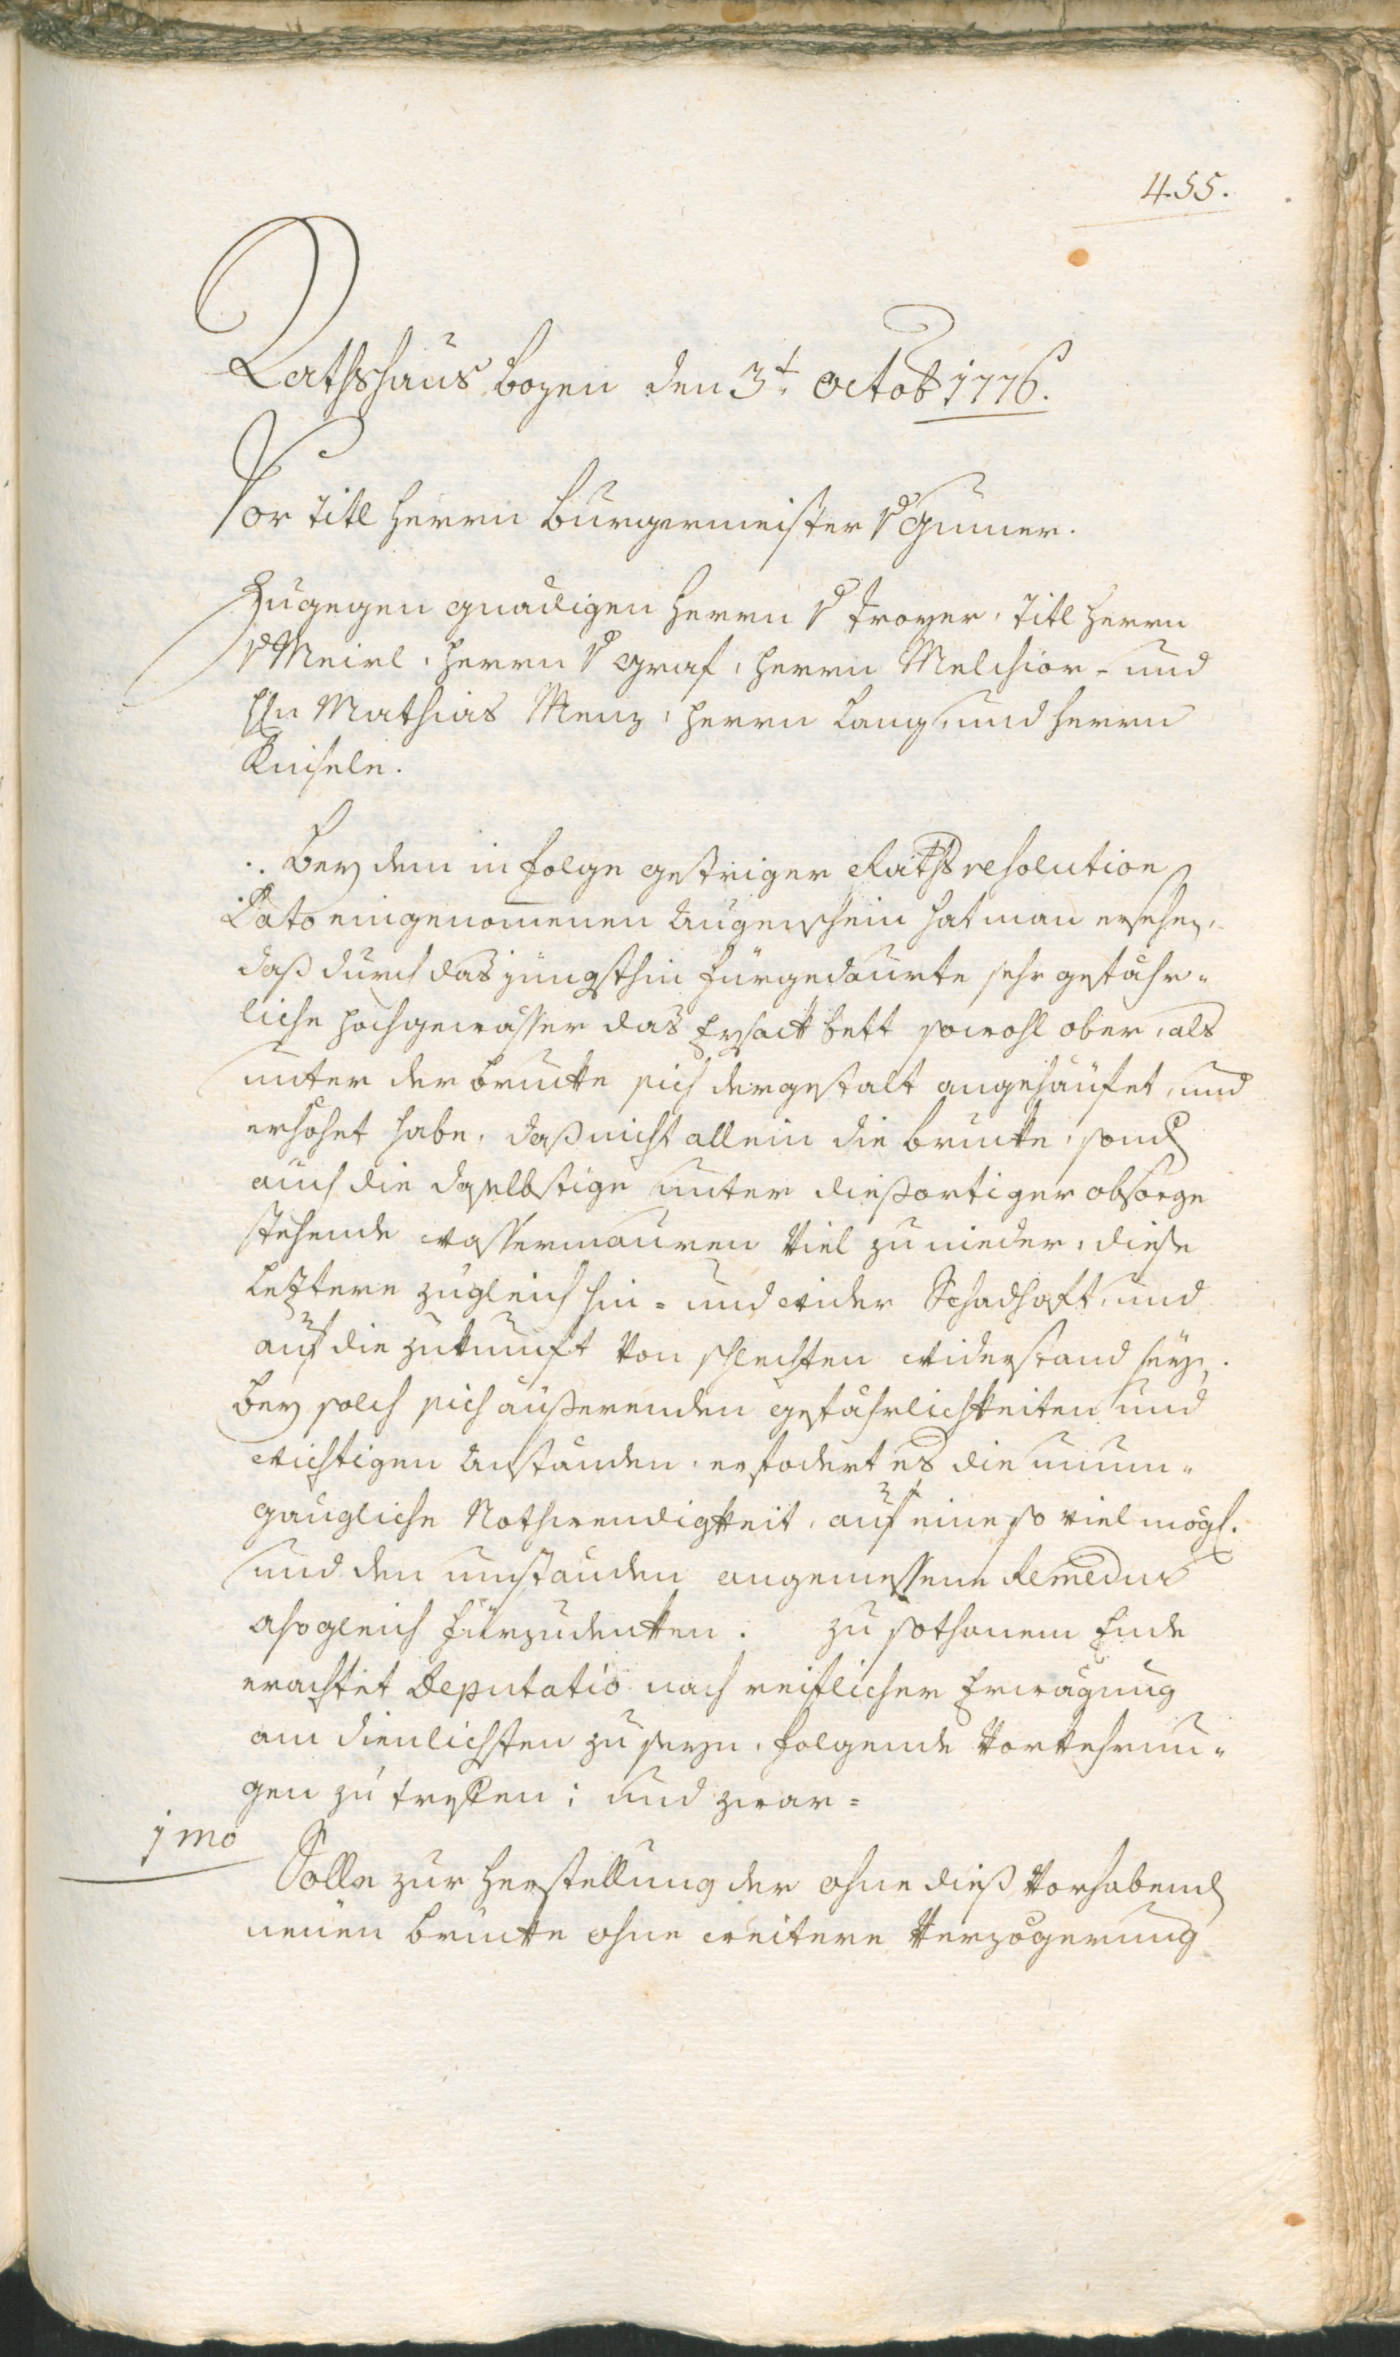 455.
Rathshaus Bozen den 3t. Octob 1776.
Vor Titl Herrn Burgermeister v Gumer.
Zugegen gnädigen Herrn v Troyer, Titl Herrn
v Meirl, Herrn v Graf, Herrn Melchior- und
Hn Mathias Menz, Herrn Lang, und Herrn
Kniseln.
Bey dem in folge gestriger Raths resolution
Dato eingenomenen Augenschein hat man ersehen,
daß durch das jüngsthin fürgedaurte sehr gefähr-
liche Hochgewässer das Eysack bett sowohl ober, als
unter der Brucke sich dergestalt angehäufet, und
erhöhet habe, daß nicht allein die Brucke, sond
auch die daselbstige unter diesortiger obsorge
stehende Wassermauren viel zu nieder, diese
letztere zugleich hin- und wider Schadhaft, und
auf die zukunft von schlechten widerstand seye.
Bey solch sich äußerenden gefährlichkeiten und
wichtigen Anständen, erfodert es die unum-
gängliche Nothwendigkeit, auf eine so viel mögl.
und den umständen angemessene Remedur
alsogleich fürzudenken. Zu sothanem Ende
erachtet Deputatio nach reiflicher Erwägung
am dienlichsten zu seyn, folgende Vorkehrun-
gen zu treffen; und zwar=
1mo
Solle zur Herstellung der ohne dieß vorhabend
neuen Brucke ohne weitere Verzögerung